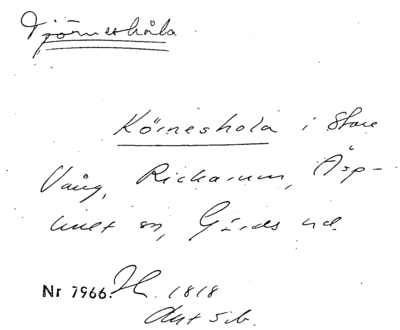 Tjörneshåla
Körneshola i Store
Vång, Rickarum, Äsp-
hult sn, Gärds hd.
Nr 7966. 1818
Avt s.b.